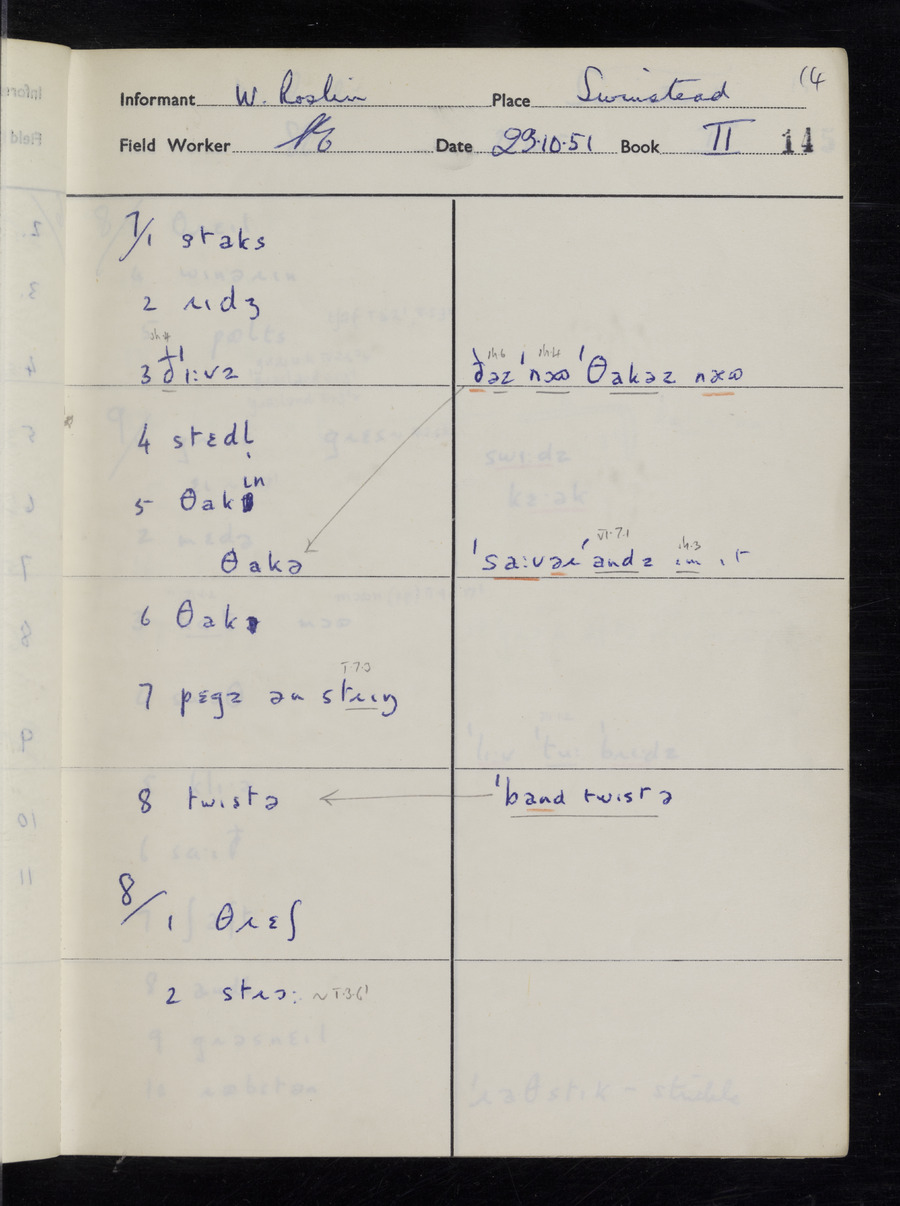 14
Informant W. Roslin Place Swinstead
Field Worker Date 29.10.51 Book II 14
7/1 staks
2 ɹɪdʒ
3 ðɪ:vz
ðəz nɔʊ ˈθakəz nɔʊ
4 stɛdl̩
5 θakɪn
θakə
ˈsa:vəɹ ˈandz ɪn ɪt
VI.7.1
6 θak
I.7.3
7 pɛgz ən stɹɪŋ
8 twɪstə ˈband twɪstə
8/1 θɹɛʃ
2 stɹɔ: ~ I.3.6